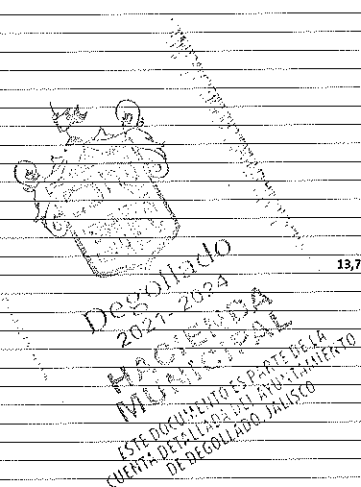 13,7
Degollado
2021-2024
HACIENDA
MUNICIPAL
ESTE DOCUMENTO ES PARTE DE LA
CUENTA DETALLADA DEL AYUNTAMIENTO
DE DEGOLLADO, JALISCO